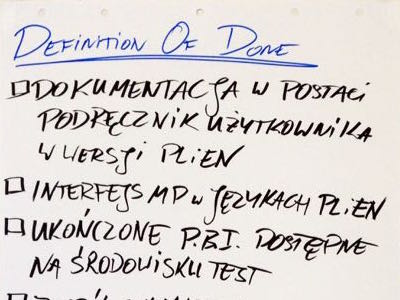 Definition Of Done
DOKUMENTACJA W POSTACI
PODRĘCZNIK UŻYTKOWNIKA
W WERSJI PL i EN
INTERFEJS MP W JĘZYKACH PL i EN
UKOŃCZONE P.B.I. DOSTĘPNE
NA ŚRODOWISKU TEST